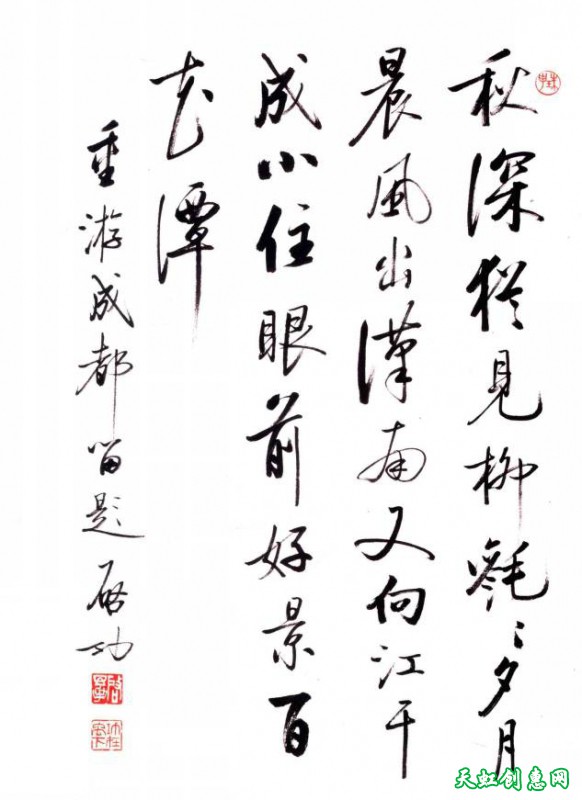 秋深犹見柳毿〻夕月
晨風出漢南又向江干
成小住眼前好景百
花潭
重游成都留題 启功
天虹创意网